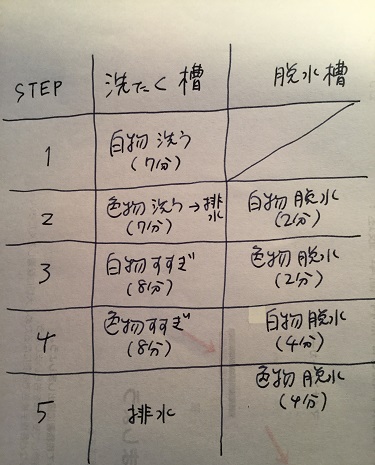 STEP 洗たく槽 脱水槽
1 白物 洗う
(7分)
2 色物 洗う→排水 白物 脱水
(7分) (2分)
3 白物 すすぎ 色物 脱水
(8分) (2分)
4 色物 すすぎ 白物 脱水
(8分) (4分)
5 排水 色物 脱水
(4分)